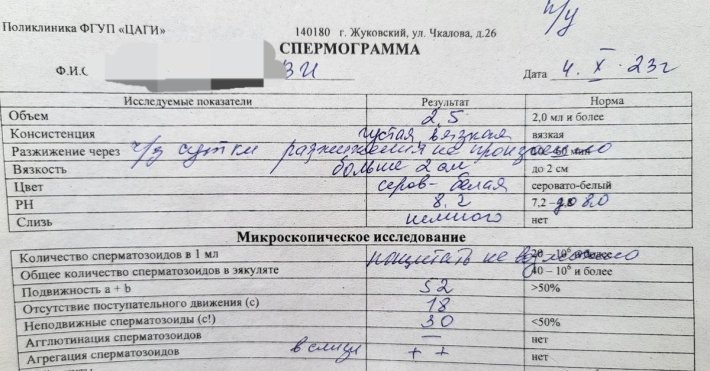 п/у
Поликлиника ФГУП «ЦАГИ» 140180 г. Жуковский, ул. Чкалова, д.26
СПЕРМОГРАММА
Ф.И.О Дата 4. X . 23г
Исследуемые показатели Результат Норма
Объем 2,5 2,0 мл и более
Консистенция густая вязкая вязкая
Разжижение через ч/з сутки разжижения не произошло мин
Вязкость больше 2 см до 2 см
Цвет серов-белая серовато-белый
PH 8.2 7,2 – до 8,0
Слизь немного нет
Микроскопическое исследование
Количество сперматозоидов в 1 мл посчитать не возможно 20 – 10⁶ и более
Общее количество сперматозоидов в эякуляте 40 – 10⁶ и более
Подвижность a + b 52 >50%
Отсутствие поступательного движения (c) 18
Неподвижные сперматозоиды (c!) 30 <50%
Агглютинация сперматозоидов — нет
Агрегация сперматозоидов в слизи + + нет